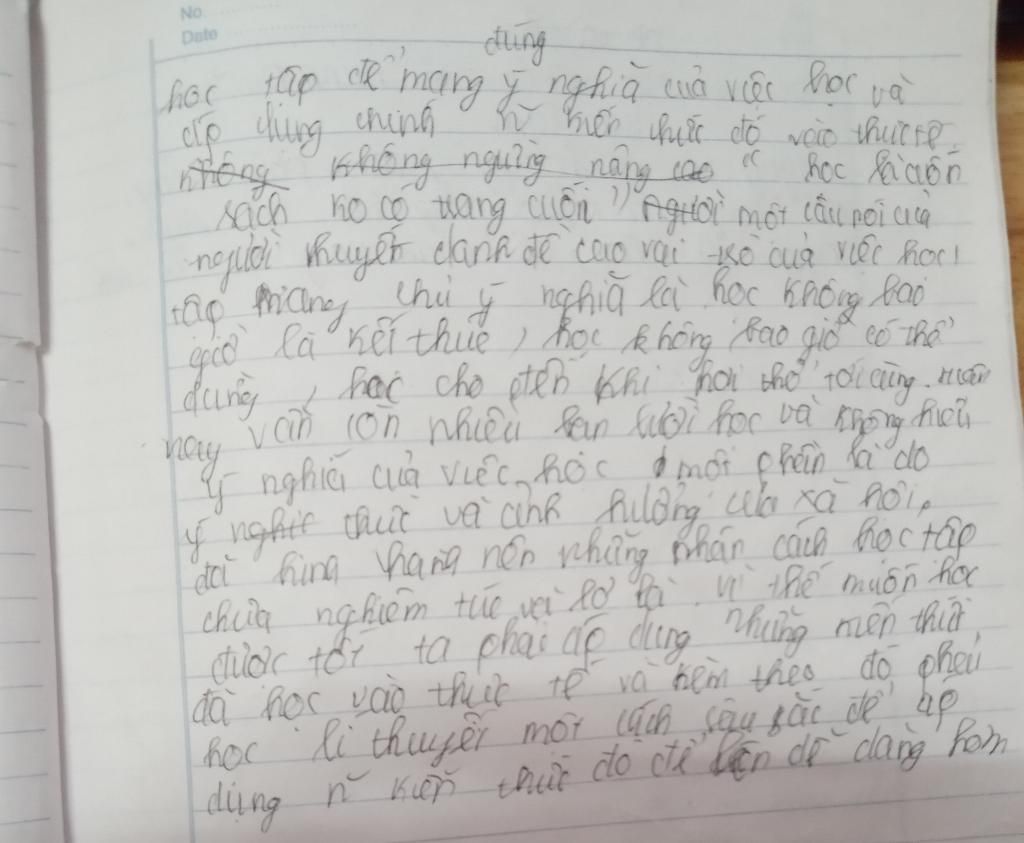 No.
Date
đúng
học tập để mang ý nghĩa của việc học và
áp dụng chính n~ kiến thức đó vào thực tế
không không ngừng nâng cao " học là cuốn
sách ko có trang cuối " Người một câu nói của
người khuyết danh đề cao vai trò của việc học
tập mang chủ ý nghĩa là học không bao
giờ là kết thúc, học không bao giờ có thể
dừng, học cho đến khi hơi thở tới cùng.
nay vẫn còn nhiều bạn lười học và không hiểu
ý nghĩa của việc học 1 mỗi phần là do
ý nghit thức và ảnh hưởng của xã hội,
đã hình thành nên những nhân cách học tập
chưa nghiêm túc và lơ là. vì thế muốn học
được tốt ta phải áp dụng những kiến thức
đã học vào thực tế và kèm theo đó phải
học lí thuyết một cách sâu sắc để áp
dụng n~ kiến thức đó để lên dễ dàng hơn